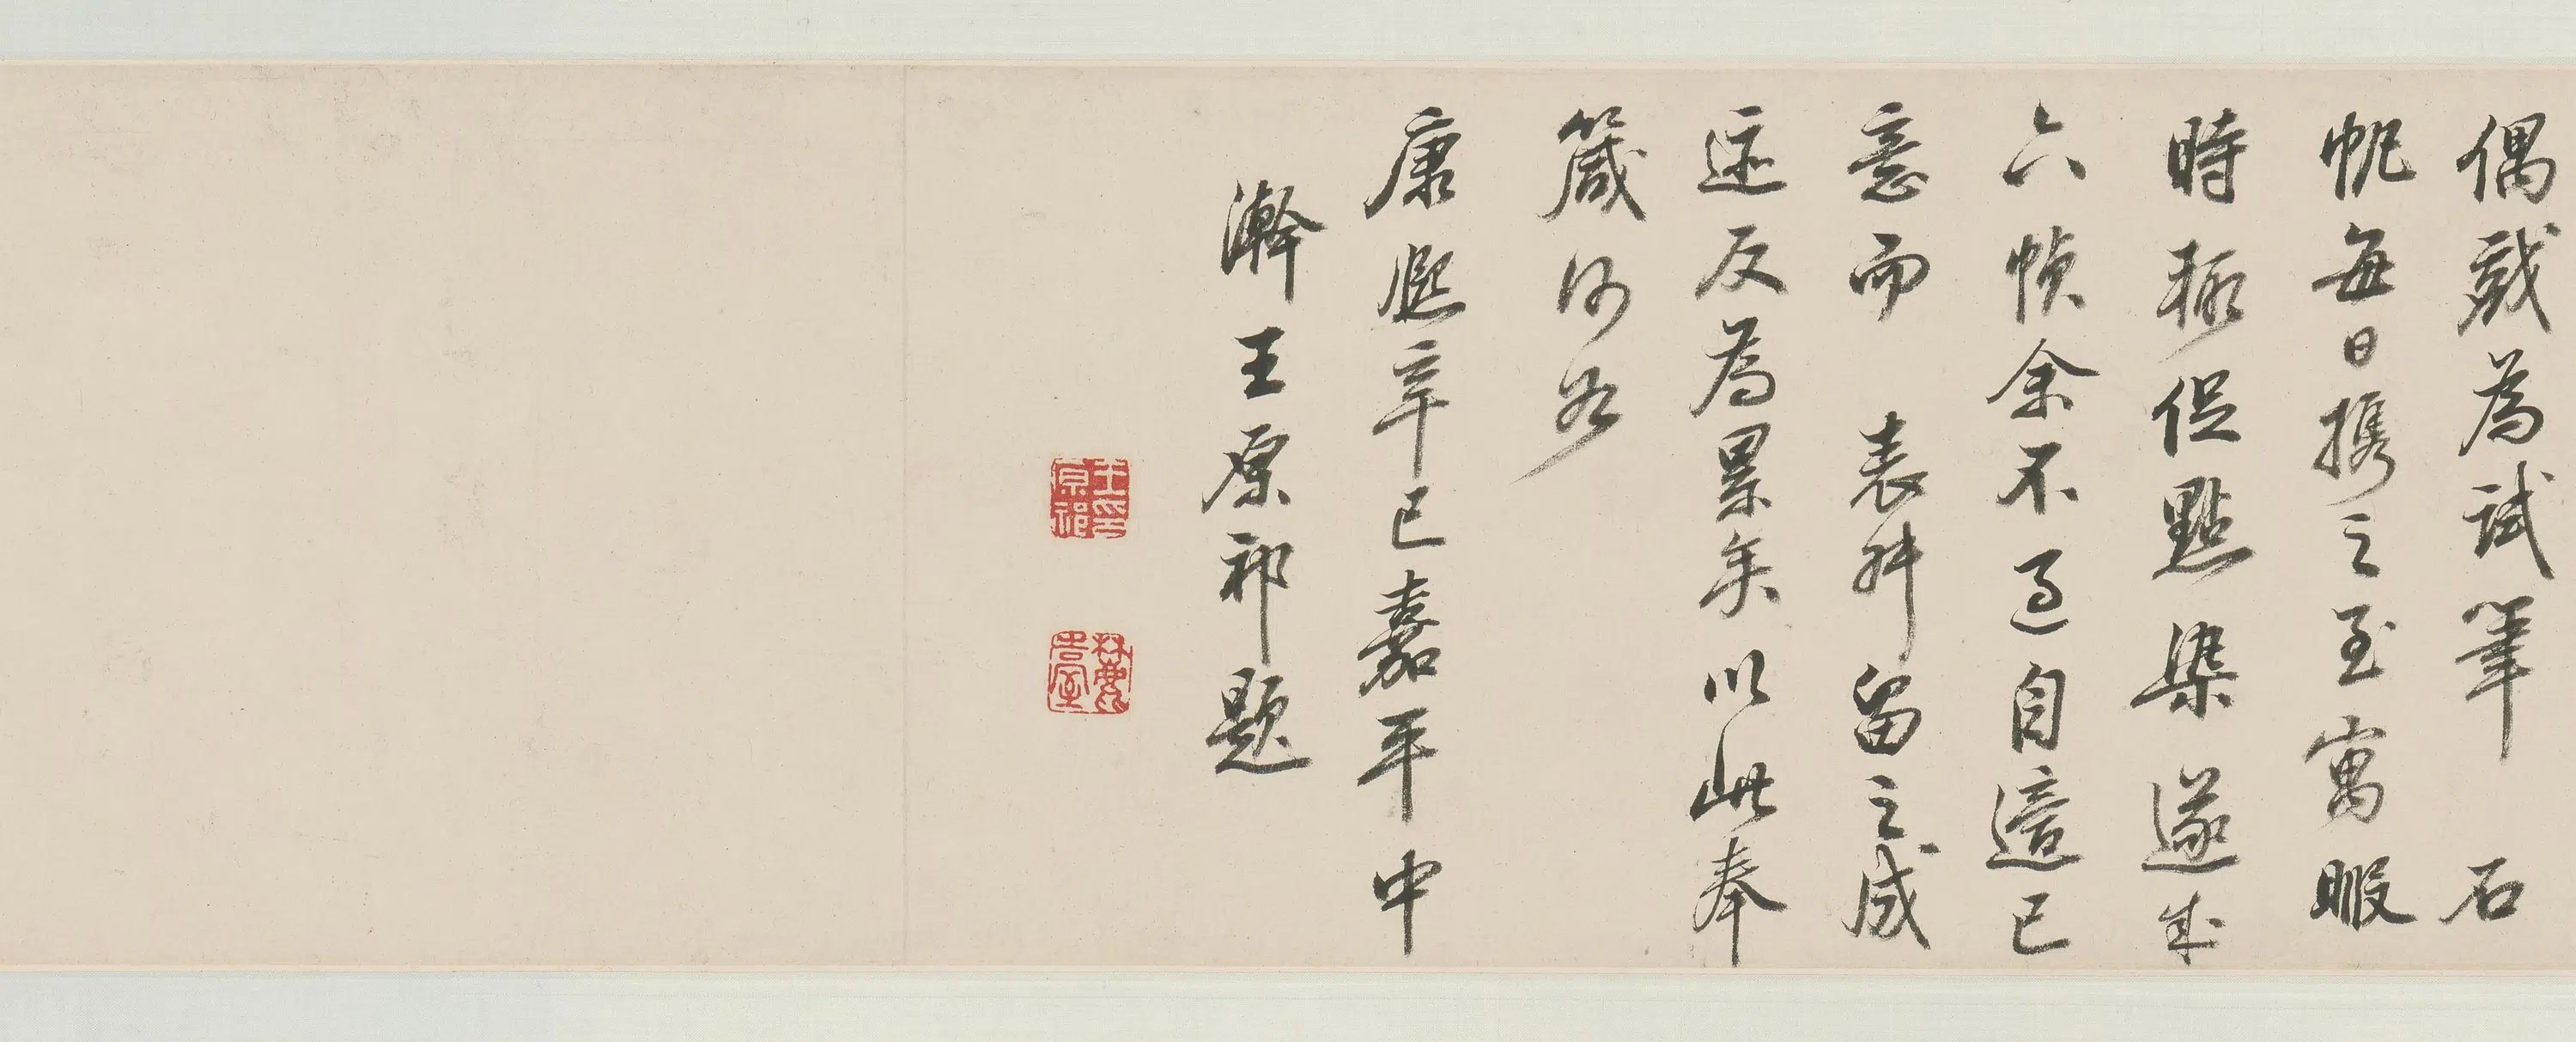 偶戲為試筆 石
帆每日携之至寓暇
時輒促點染遂成
六幀余不過自適己
意而 表叔留之成
迹反為累矣以此奉
箴何如
康熙辛巳嘉平中
澣王原祁題
王印原祁
麓臺